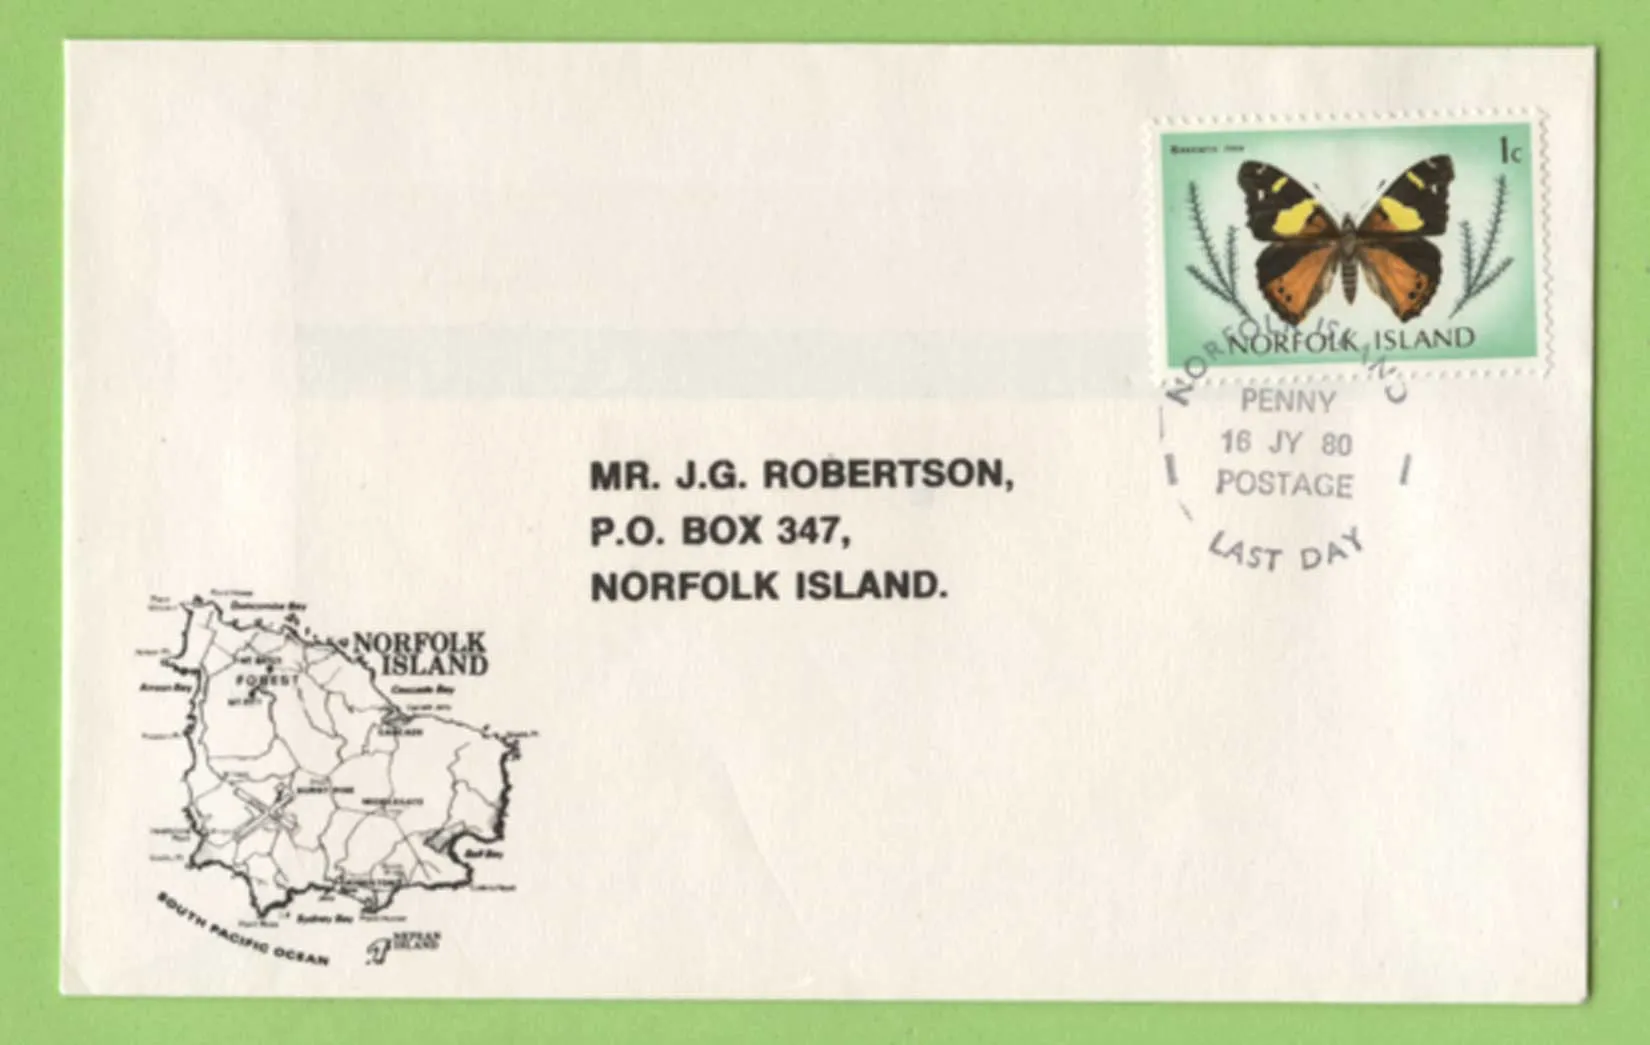 1c
NORFOLK ISLAND
NORFOLK ISLAND
PENNY
16 JY 80
POSTAGE
LAST DAY
MR. J.G. ROBERTSON,
P.O. BOX 347,
NORFOLK ISLAND.
Duncombe Bay
NORFOLK
ISLAND
FOREST
Anson Bay
Cascade Bay
CASCADE
BURNT PINE
MIDDLEGATE
Ball Bay
Sydney Bay
SOUTH PACIFIC OCEAN
NEPEAN
ISLAND